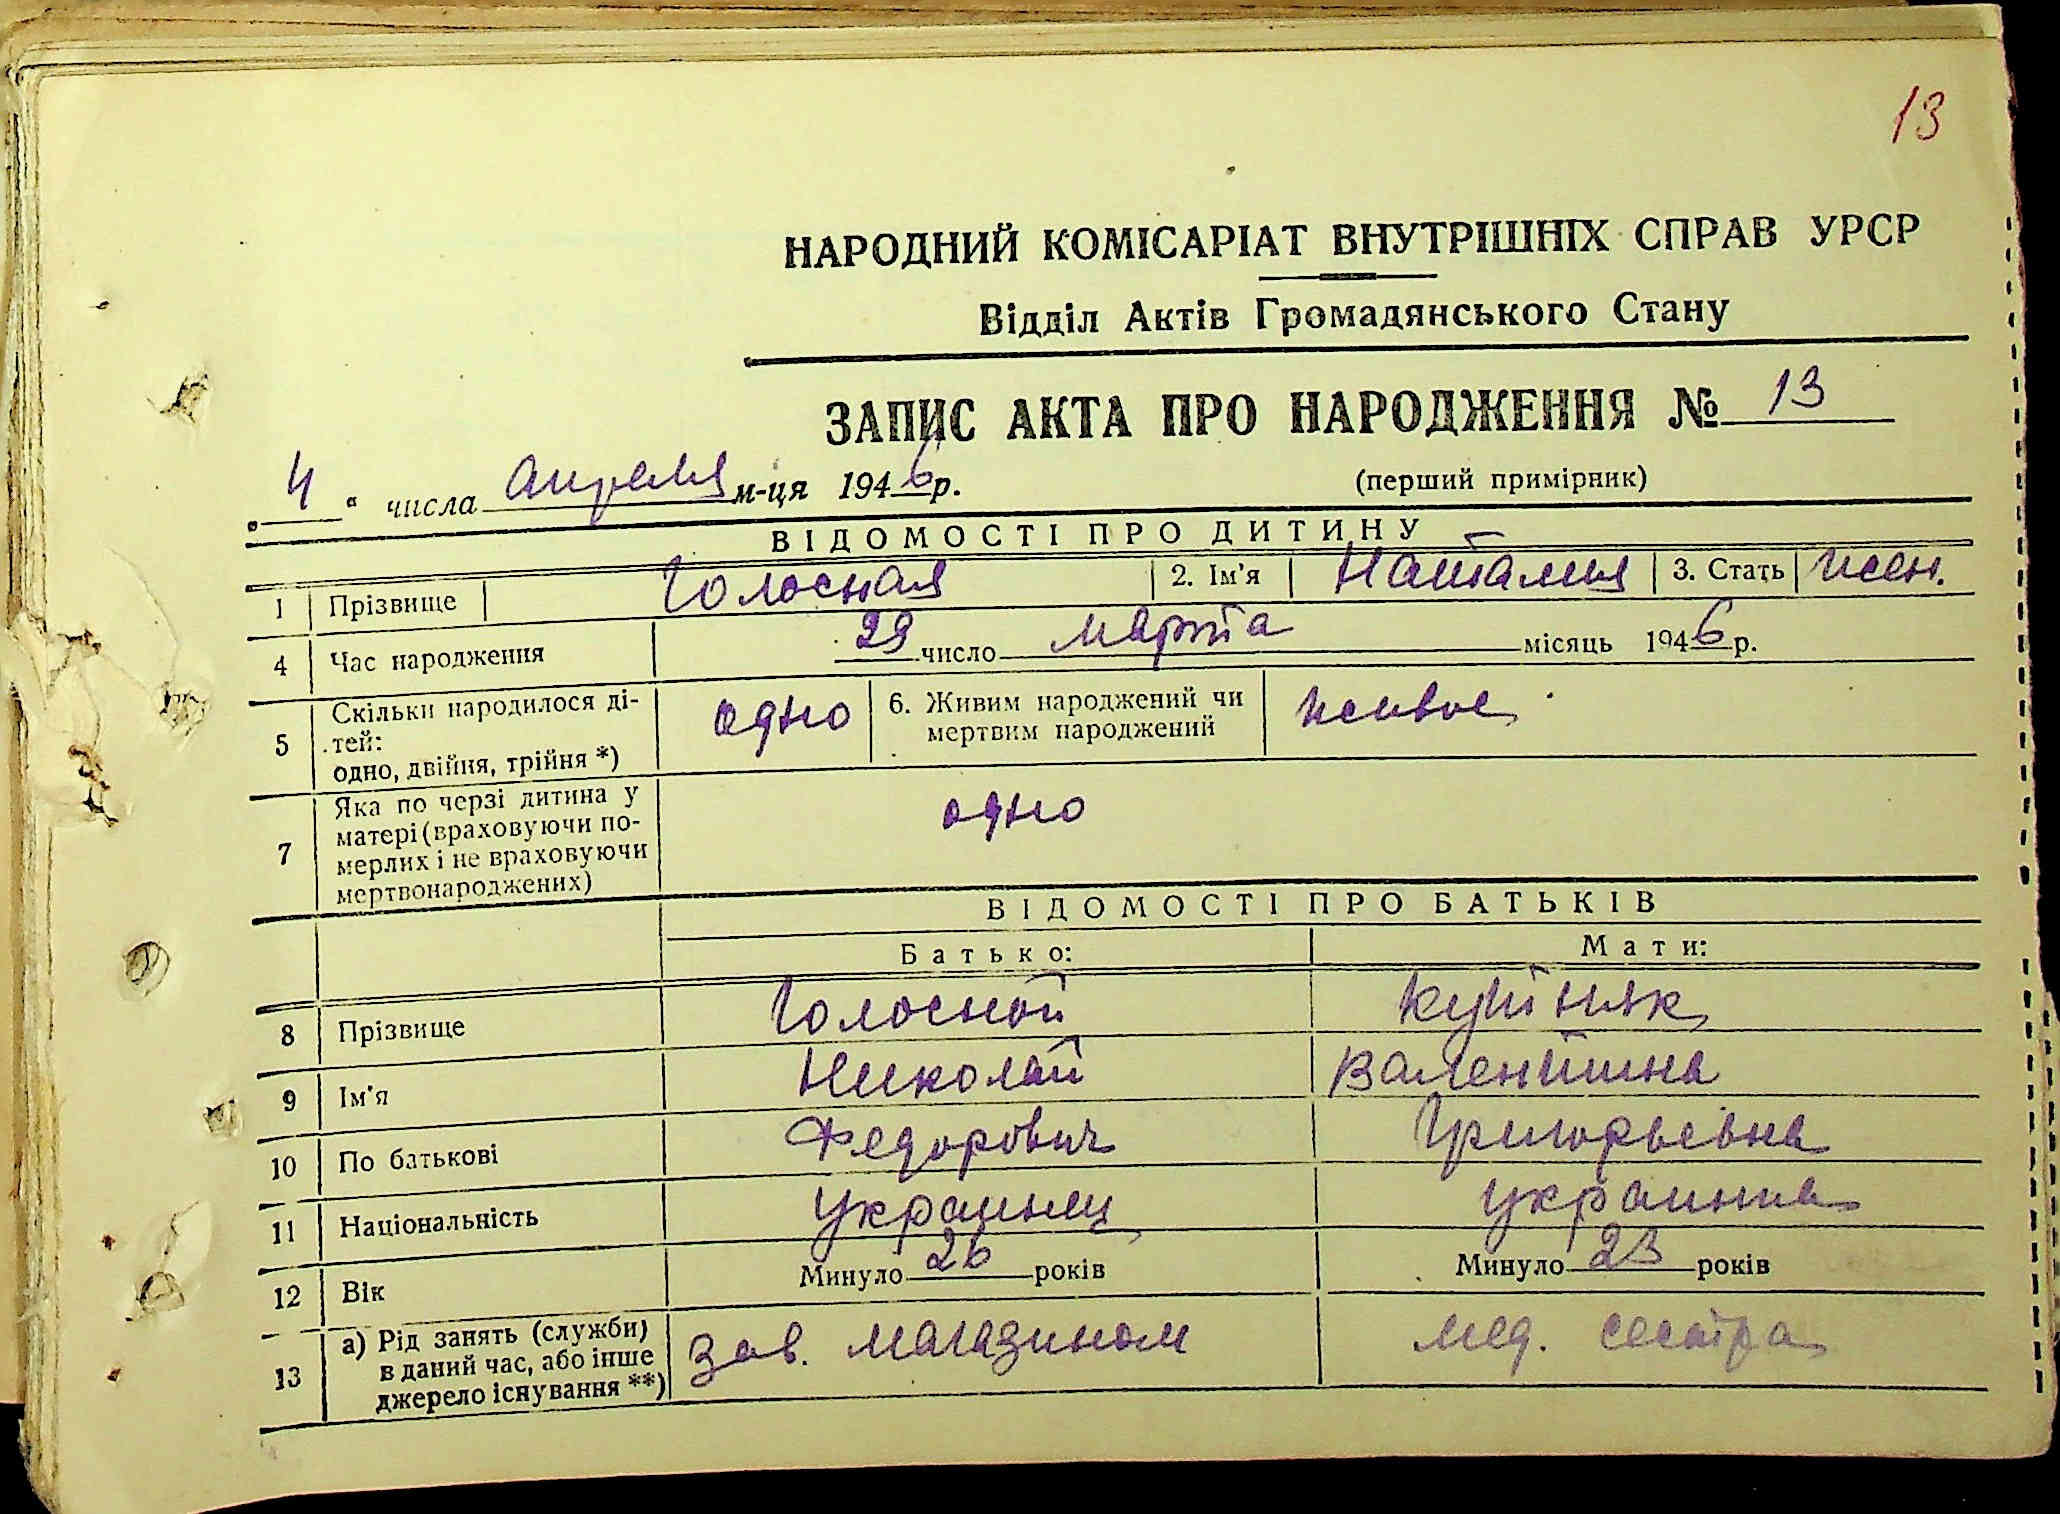 13
НАРОДНИЙ КОМІСАРІАТ ВНУТРІШНІХ СПРАВ УРСР
Відділ Актів Громадянського Стану
ЗАПИС АКТА ПРО НАРОДЖЕННЯ № 13
„4“ числа апреля м-ця 1946 р.
(перший примірник)
ВІДОМОСТІ ПРО ДИТИНУ
1 Прізвище Голосная 2. Ім'я Наталия 3. Стать жен.
4 Час народження 29 число марта місяць 1946 р.
5 Скільки народилося ді-
тей:
одно, двійня, трійня *)
одно
6. Живим народжений чи
мертвим народжений
живое
7 Яка по черзі дитина у
матері (враховуючи по-
мерлих і не враховуючи
мертвонароджених)
одно
ВІДОМОСТІ ПРО БАТЬКІВ
Батько: Мати:
8 Прізвище Голосной Кушняк
9 Ім'я Николай Валентина
10 По батькові Федорович Григорьевна
11 Національність украинец украинка
12 Вік Минуло 26 років Минуло 23 років
13 а) Рід занять (служби)
в даний час, або інше
джерело існування **)
зав. магазином мед. сестра